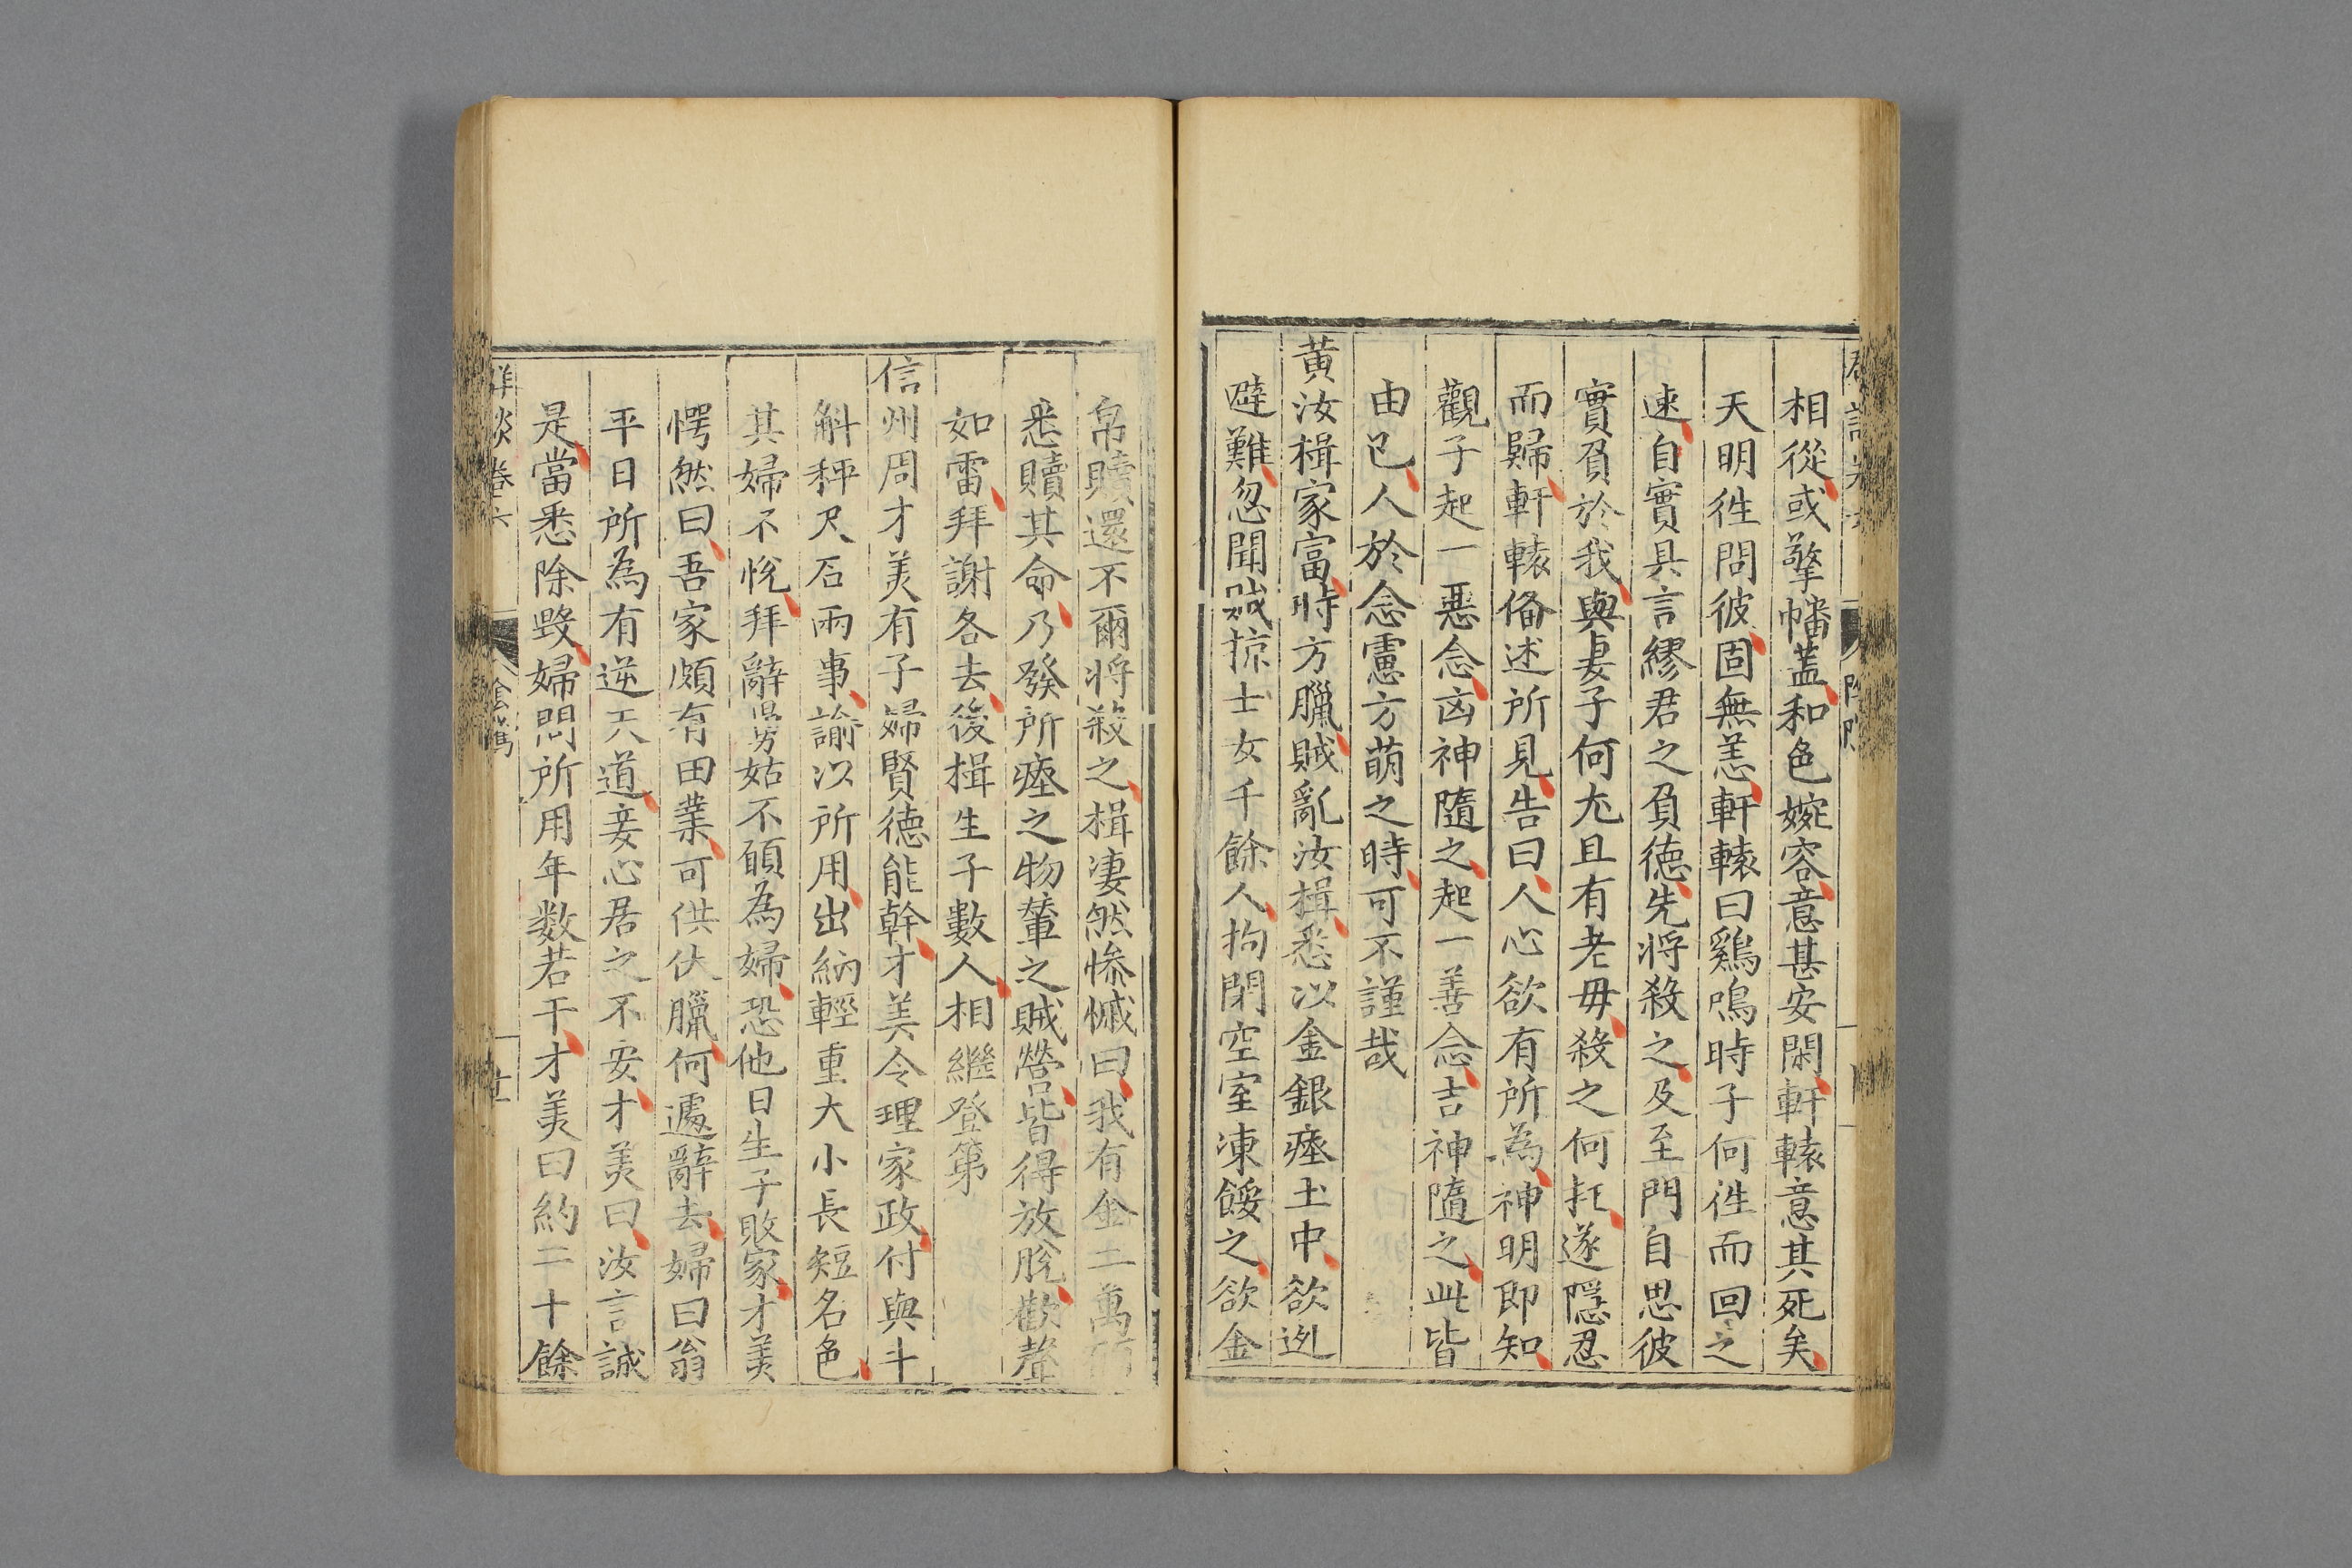 相從或擎幡蓋和色婉容意甚安閑軒轅意其死矣
天明徃問彼固無恙軒轅曰鷄鳴時子何徃而回之
速自實具言繆君之負德先将殺之及至門自思彼
實負於我與妻子何尤且有老毋殺之何托遂隠忍
而歸軒轅俻述所見告曰人心欲有所為神明即知
觀子起一惡念凶神隨之起一善念吉神隨之此皆
由已人於念慮方萌之時可不謹哉
黄汝楫家富時方臘賊亂汝楫悉以金銀瘞土中欲迯
避難忽聞賊掠士女千餘人拘閉空室凍餒之欲金
帛贖還不爾将殺之楫凄然慘慽曰我有金二萬
悉贖其命乃發所瘞之物輦之賊營皆得放脫歡聲
如雷拜謝各去後楫生子數人相繼登第
信州周才美有子婦賢德能幹才美令理家政付與斗
斛秤尺石兩事諭以所用出納輕重大小長短名色
其婦不悅拜辭舅姑不願為婦恐他日生子敗家才美
愕然曰吾家頗有田業可供伏臘何遽辭去婦曰翁
平日所為有逆天道妾心居之不安才美曰汝言誠
是當悉除毀婦問所用年数若干才美曰約二十餘
卷六